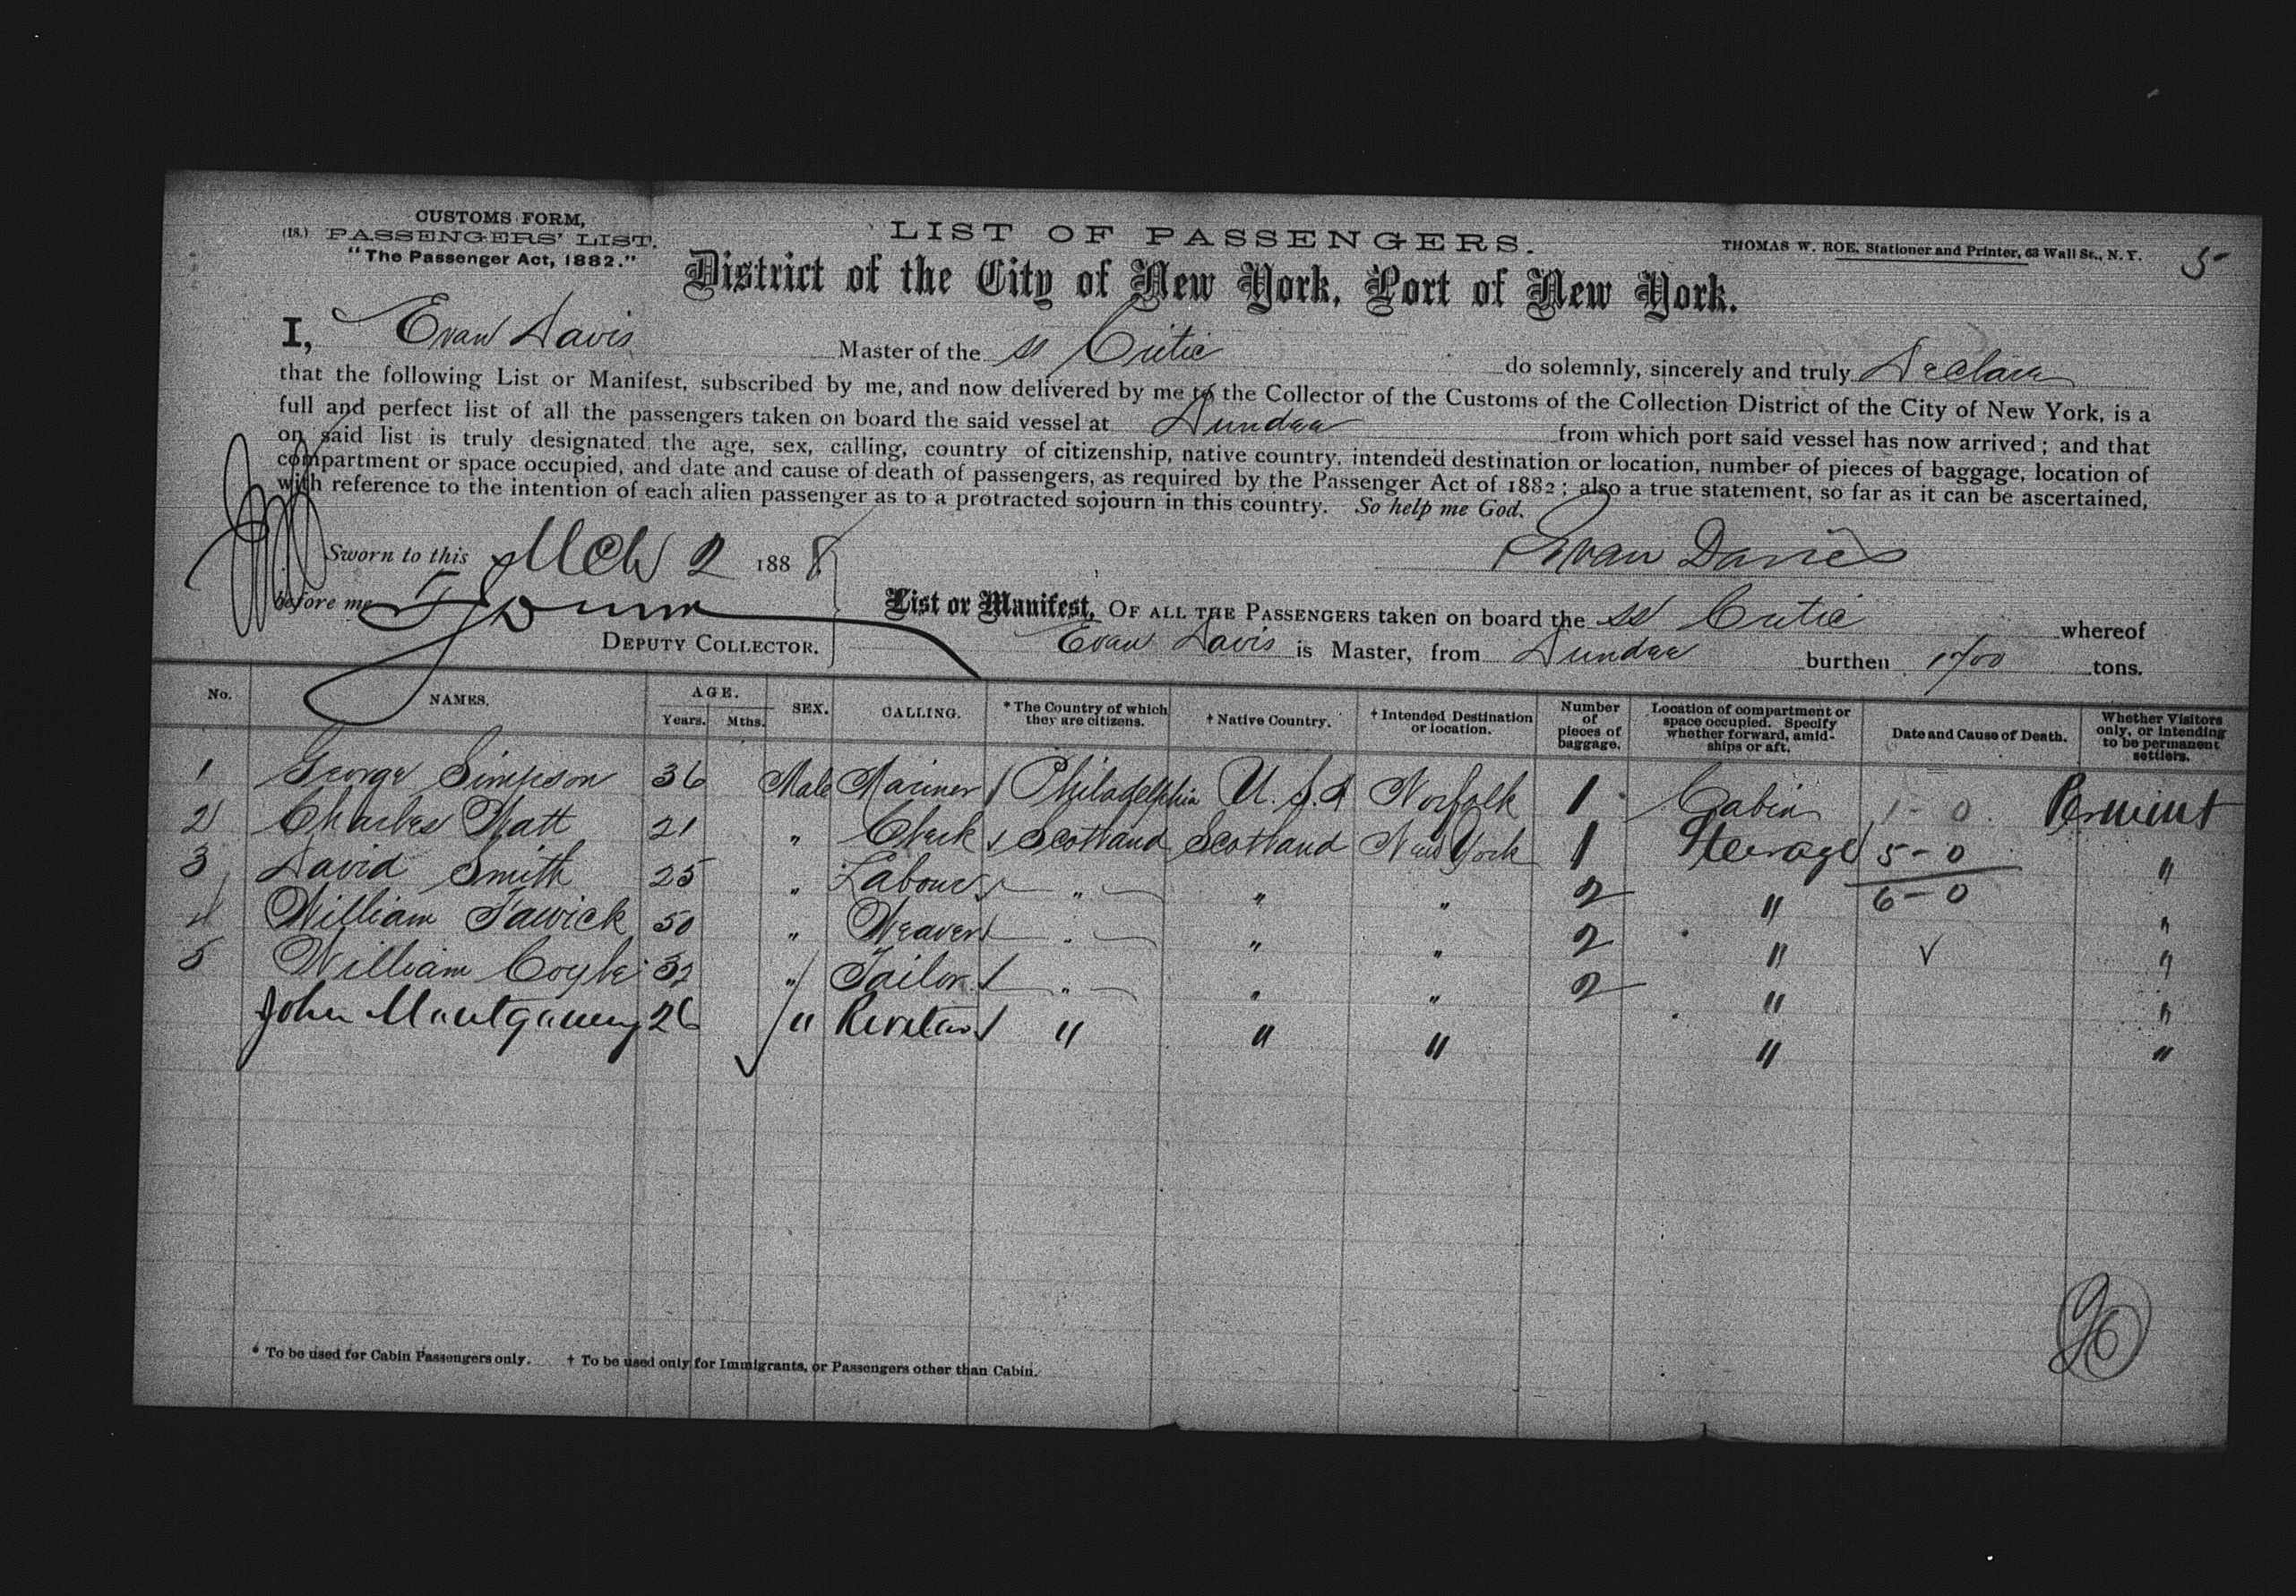 CUSTOMS FORM,
(18.) PASSENGERS' LIST.
"The Passenger Act, 1882."
LIST OF PASSENGERS.
THOMAS W. ROE, Stationer and Printer, 63 Wall St., N. Y.
5
District of the City of New York, Port of New York.
I, Evan Davis Master of the ss Critic do solemnly, sincerely and truly Declare
that the following List or Manifest, subscribed by me, and now delivered by me to the Collector of the Customs of the Collection District of the City of New York, is a
full and perfect list of all the passengers taken on board the said vessel at Dundee from which port said vessel has now arrived; and that
on said list is truly designated the age, sex, calling, country of citizenship, native country, intended destination or location, number of pieces of baggage, location of
compartment or space occupied, and date and cause of death of passengers, as required by the Passenger Act of 1882; also a true statement, so far as it can be ascertained,
with reference to the intention of each alien passenger as to a protracted sojourn in this country. So help me God.
Sworn to this Mch 2 1888
Evan Davies
before me
DEPUTY COLLECTOR.
List or Manifest, OF ALL THE PASSENGERS taken on board the ss Critic whereof
Evan Davis is Master, from Dundee burthen 1700 tons.
No. NAMES. AGE. Years. Mths. SEX. CALLING. * The Country of which they are citizens. † Native Country. † Intended Destination or location. Number of pieces of baggage. Location of compartment or space occupied. Specify whether forward, amidships or aft. Date and Cause of Death. Whether Visitors only, or intending to be permanent settlers.
1 George Simpson 36 Male Mariner / Philadelphia U.S.A Norfolk 1 Cabin 1-0 Perminent
2 Charles Watt 21 " Clerk / Scotland Scotland New York 1 Steerage 5-0 "
3 David Smith 25 " Labourer / " " " 2 " 6-0 "
4 William Fawick 50 " Weaver / " " " 2 " ✓ "
5 William Coyle 32 " Tailor / " " " 2 " "
John Montgomery 26 " Riveter / " " " " "
* To be used for Cabin Passengers only. † To be used only for Immigrants, or Passengers other than Cabin.